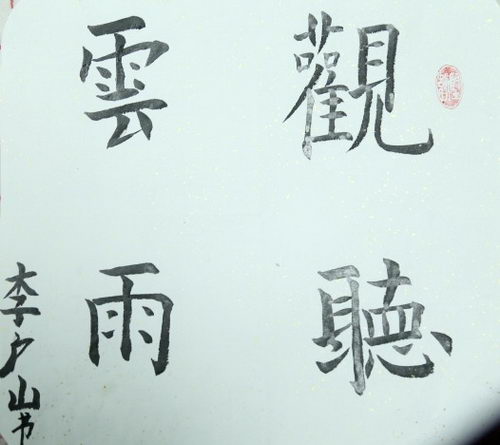 觀雲
聽雨
李户山书